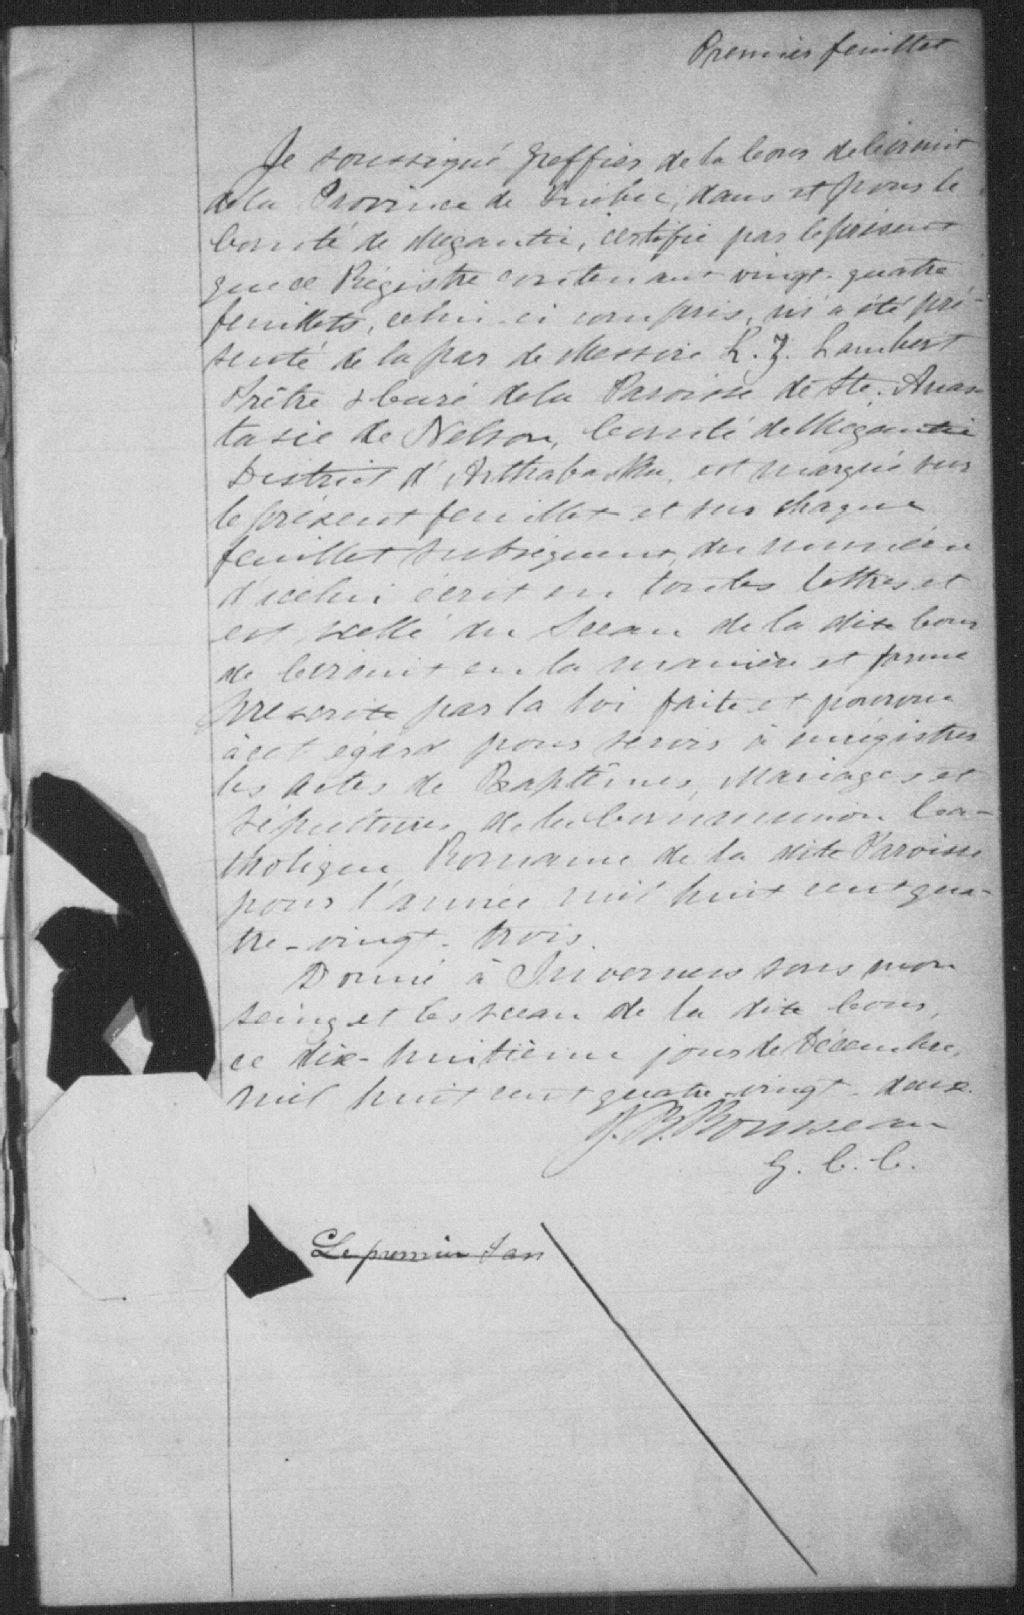 Premier feuillet
Je soussigné Greffier de la Cour de Circuit
de la Province de Québec, dans et pour le
Comté de Megantic, certifie par le présent
que ce Régistre contenant vingt-quatre
feuillets, celui-ci compris, m'a été pré-
senté de la par de Messire L. Z. Lambert
Prêtre & Curé de la Paroisse de Ste. Anas-
tasie de Nelson, Comté de Mégantic
District d'Arthabaska, est marqué sur
le présent feuillet et sur chaque
feuillet subséquent, du numéro
d'icelui écrit en toutes lettres et
est scellé du Sceau de la dite Cour
de Circuit en la manière et forme
prescrite par la loi faite et pourvue
à cet égard pour servir à enrégistrer
les Actes de Baptêmes, Mariages et
Sépultures de la Communion Ca-
tholique Romaine de la dite Paroisse
pour l'année mil huit cent qua-
tre-vingt-trois.
Donné à Inverness sous mon
seing et le sceau de la dite Cour,
ce dix-huitième jour de Décembre,
mil huit cent quatre-vingt-deux.
J. B. Rousseau
G. C. C.
Le premier Jan